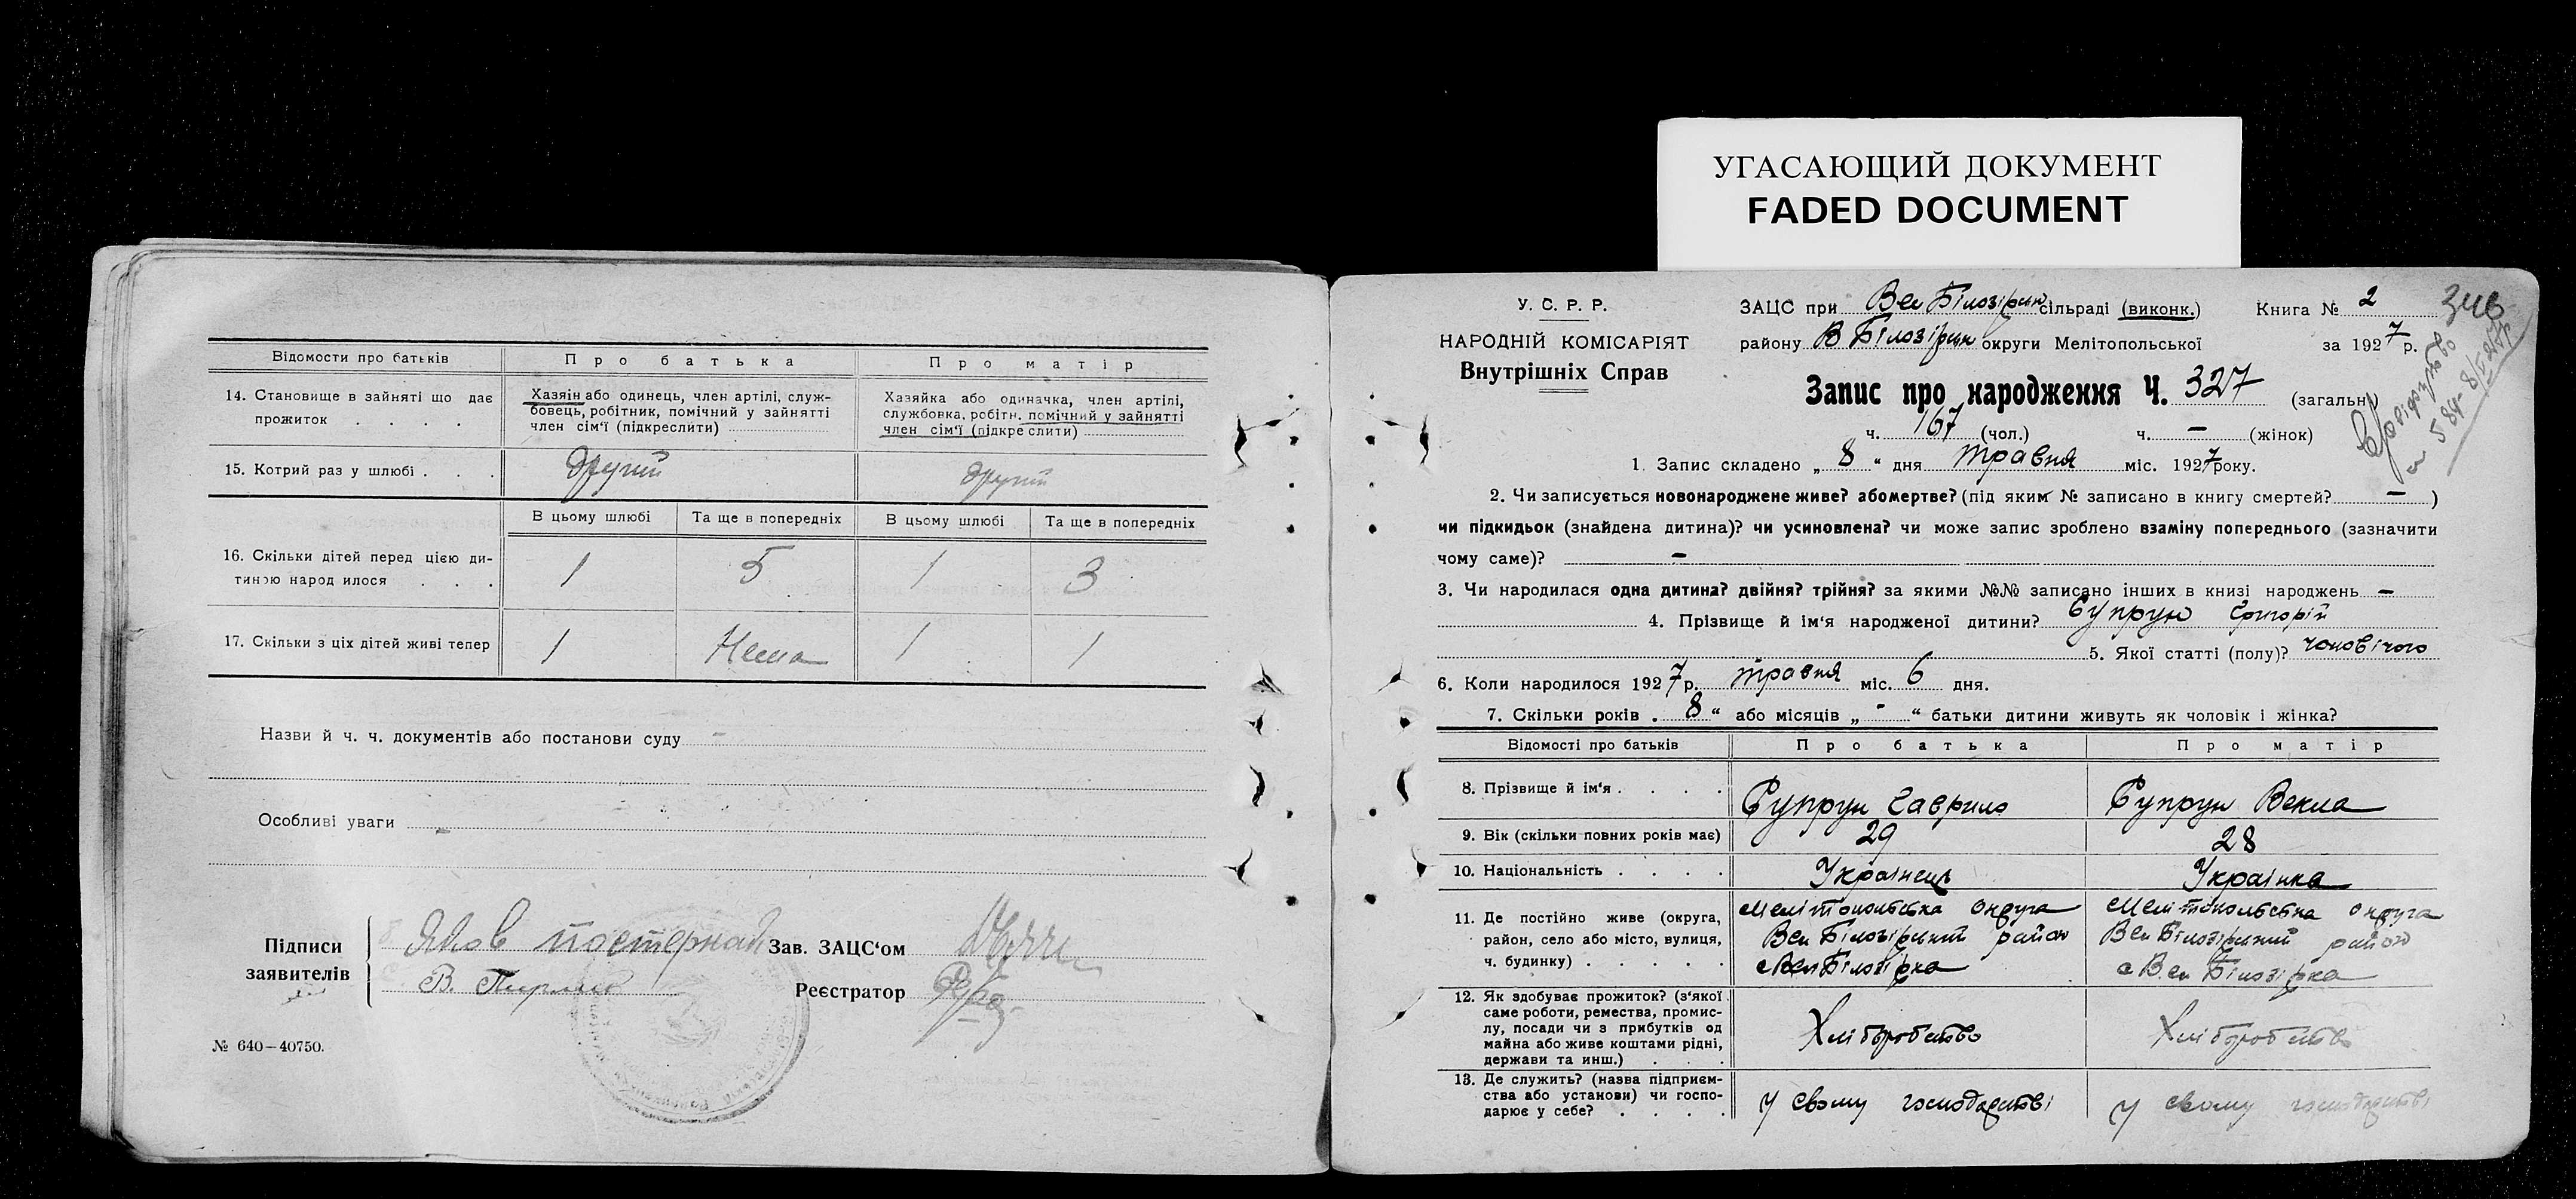 УГАСАЮЩИЙ ДОКУМЕНТ
FADED DOCUMENT
Відомости про батьків Про батька Про матір
14. Становище в зайняті що дає прожиток . . . .
Хазяін або одинець, член артілі, служ-
бовець, робітник, помічний у зайнятті
член сім'ї (підкреслити)
Хазяйка або одиначка, член артілі,
службовка, робітн. помічний у зайнятті
член сім'ї (підкреслити)
15. Котрий раз у шлюбі . . . другий другий
В цьому шлюбі Та ще в попередніх В цьому шлюбі Та ще в попередніх
16. Скільки дітей перед цією ди-
тиною народилося . . . 1 5 1 3
17. Скільки з ціх дітей живі тепер 1 Нема 1 1
Назви й ч. ч. документів або постанови суду -
Особливі уваги -
Підписи
заявителів
Яков постернак
В. Пирлик
Зав. ЗАЦС'ом
Реєстратор
№ 640—40750.
У. С. Р. Р.
НАРОДНІЙ КОМІСАРІЯТ
Внутрішніх Справ
ЗАЦС при Вел Білозірці сільраді (виконк.) Книга № 2
району В Білозірки округи Мелітопольської за 1927 р.
Запис про народження Ч. 327 (загальн.)
ч. 167 (чол.) ч. — (жінок)
1. Запис складено „ 8 “ дня травня міс. 1927 року.
2. Чи записується новонароджене живе? або мертве? (під яким № записано в книгу смертей? — )
чи підкидьок (знайдена дитина)? чи усиновлена? чи може запис зроблено взаміну попереднього (зазначити
чому саме)? —
3. Чи народилася одна дитина? двійня? трійня? за якими №№ записано інших в книзі народжень —
4. Прізвище й ім'я народженої дитини? Супрун Григорій
5. Якої статті (полу)? чоловічого
6. Коли народилося 1927 р. травня міс. 6 дня.
7. Скільки років . 8 “ або місяців „ - “ батьки дитини живуть як чоловік і жінка?
Відомості про батьків Про батька Про матір
8. Прізвище й ім'я . . . . Супрун Гаврило Супрун Векла
9. Вік (скільки повних років має) 29 28
10. Національність . . . . Українець Українка
11. Де постійно живе (округа,
район, село або місто, вулиця,
ч. будинку) . . . . .
Мелітопольська округа
Вел Білозірський район
с Вел Білозірка
Мелітопольська округа
Вел Білозірський район
с Вел Білозірка
12. Як здобуває прожиток? (з'якої
саме роботи, ремества, промис-
лу, посади чи з прибутків од
майна або живе коштами рідні,
держави та инш.) . . .
Хліборобство Хліборобство
13. Де служить? (назва підприєм-
ства або установи) чи госпо-
дарює у себе? . . . .
у свому господарстві у свому господарстві